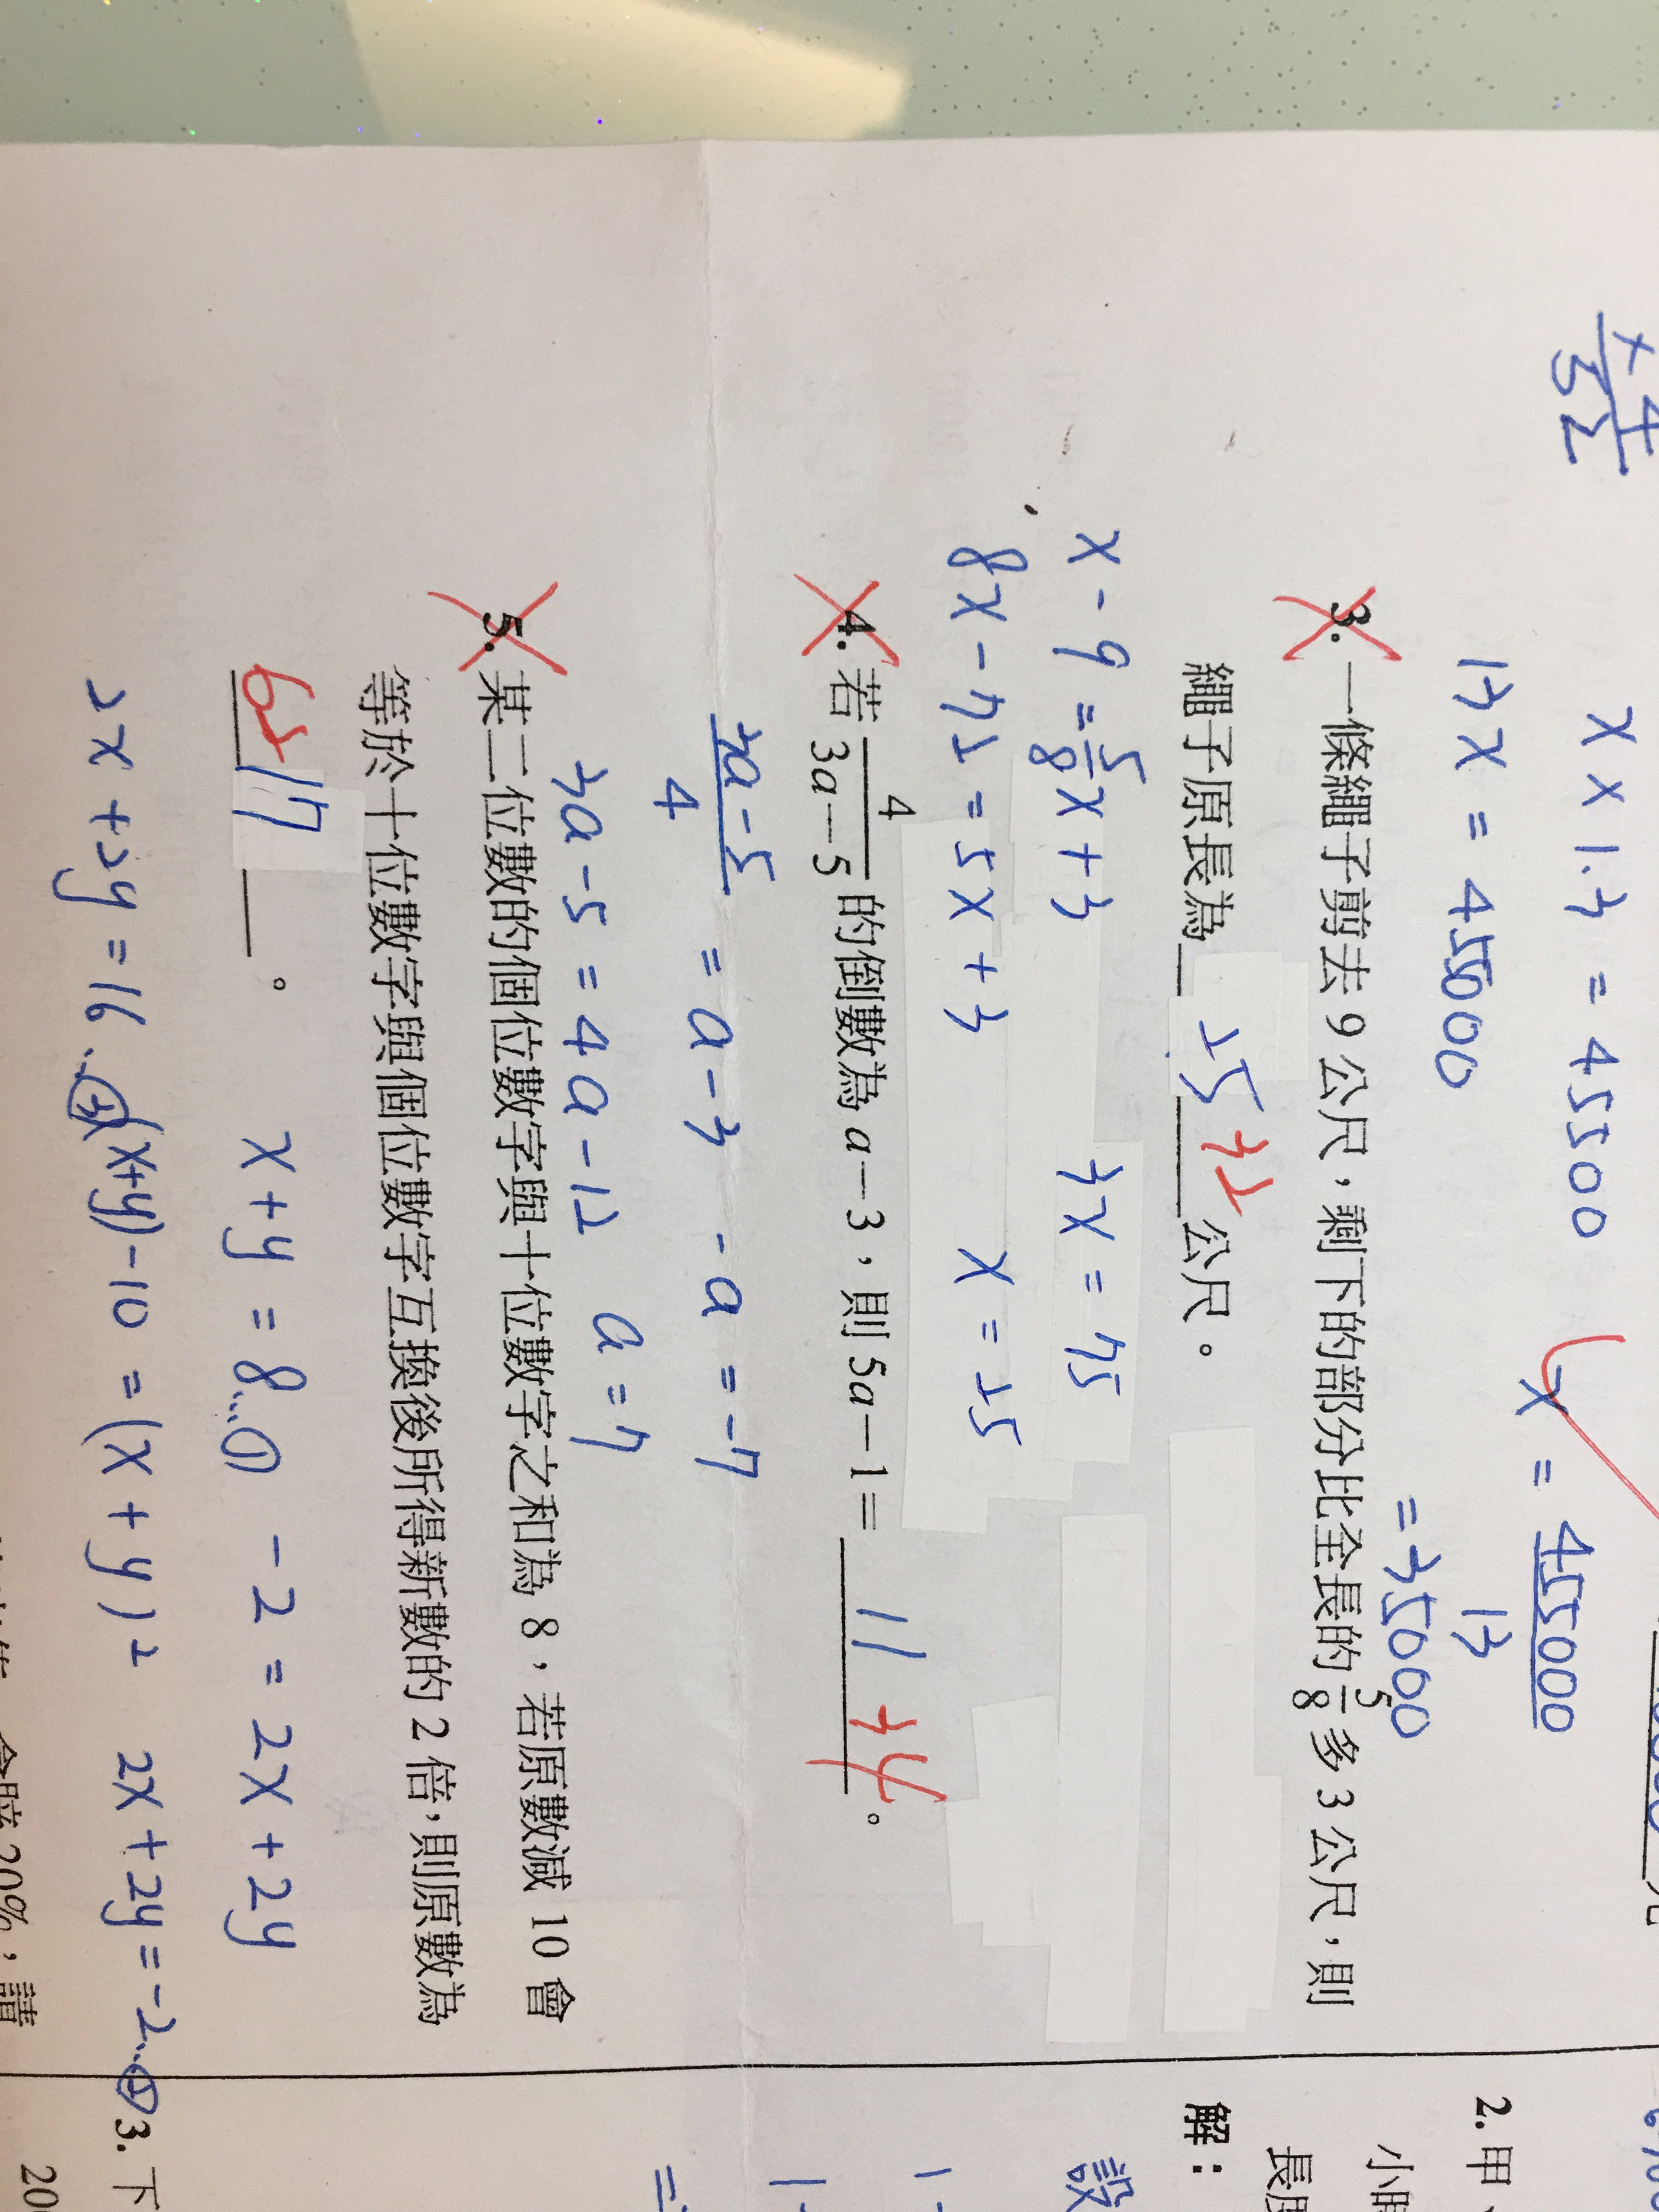 x 4
52
x × 1.3 = 45500
13x = 455000
x = 455000
13
= 35000
3. 一條繩子剪去 9 公尺，剩下的部分比全長的 5/8 多 3 公尺，則
繩子原長為 25 32 公尺。
x - 9 = 5/8 x + 3 3x = 75
8x - 72 = 5x + 3 x = 25
4. 若 4/3a－5 的倒數為 a－3，則 5a－1＝ 11 34 。
3a-5/4 = a - 3 -a = -7
3a - 5 = 4a - 12 a = 7
5. 某二位數的個位數字與十位數字之和為 8，若原數減 10 會
等於十位數字與個位數字互換後所得新數的 2 倍，則原數為
62 17 。
x + y = 8...① -2 = 2x + 2y
2x + 2y = 16...③ (x+y) - 10 = (x + y) 2 2x + 2y = -2...②
2. 甲、
解：
設
3. 下
20
20%，請